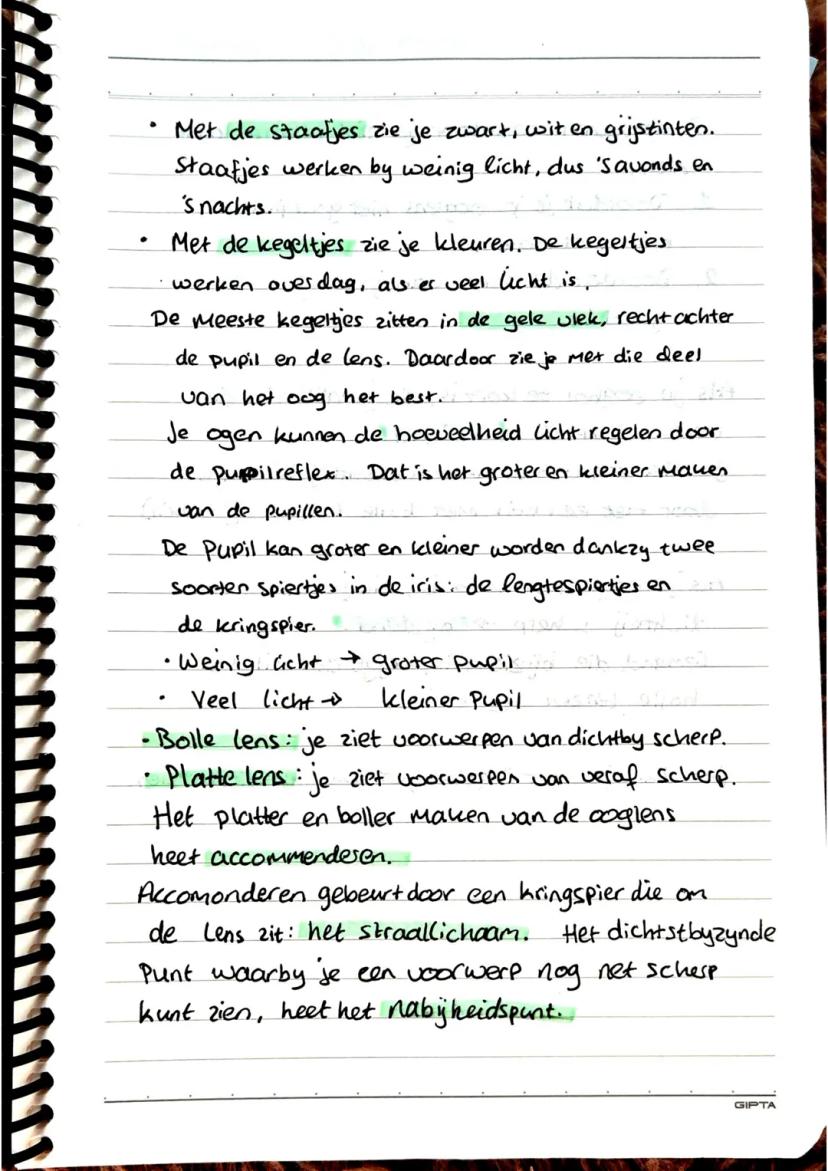 • Met de staafjes zie je zwart, wit en grijstinten.
Staafjes werken by weinig licht, dus 's avonds en
's nachts.
• Met de kegeltjes zie je kleuren. De kegeltjes
werken overdag, als er veel licht is.
De meeste kegeltjes zitten in de gele vlek, recht achter
de pupil en de lens. Daardoor zie je met die deel
van het oog het best.
Je ogen kunnen de hoeveelheid licht regelen door
de pupilreflex. Dat is het groter en kleiner maken
van de pupillen.
De Pupil kan groter en kleiner worden dankzy twee
soorten spiertjes in de iris: de lengtespiertjes en
de kringspier.
• Weinig licht → groter pupil
• Veel licht → kleiner Pupil
• Bolle lens: je ziet voorwerpen van dichtby scherp.
• Platte lens: je ziet voorwerpen van veraf scherp.
Het platter en boller maken van de ooglens
heet accommenderen.
Accomonderen gebeurt door een kringspier die om
de Lens zit: het straallichaam. Het dichtstbyzynde
Punt waarby je een voorwerp nog net scherp
kunt zien, heet het nabijheidspunt.
GIPTA